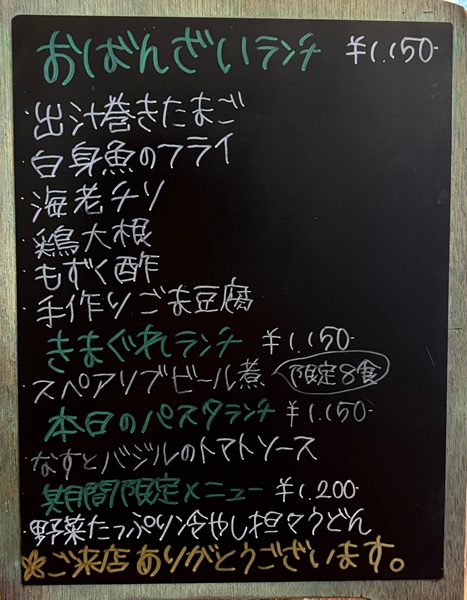 おばんざいランチ ¥1,150-
・出汁巻きたまご
・白身魚のフライ
・海老チリ
・鶏大根
・もずく酢
・手作りごま豆腐
きまぐれランチ ¥1,150-
スペアリブビール煮 限定8食
本日のパスタランチ ¥1,150-
なすとバジルのトマトソース
期間限定メニュー ¥1,200-
野菜たっぷり冷やし担々うどん
ご来店ありがとうございます。